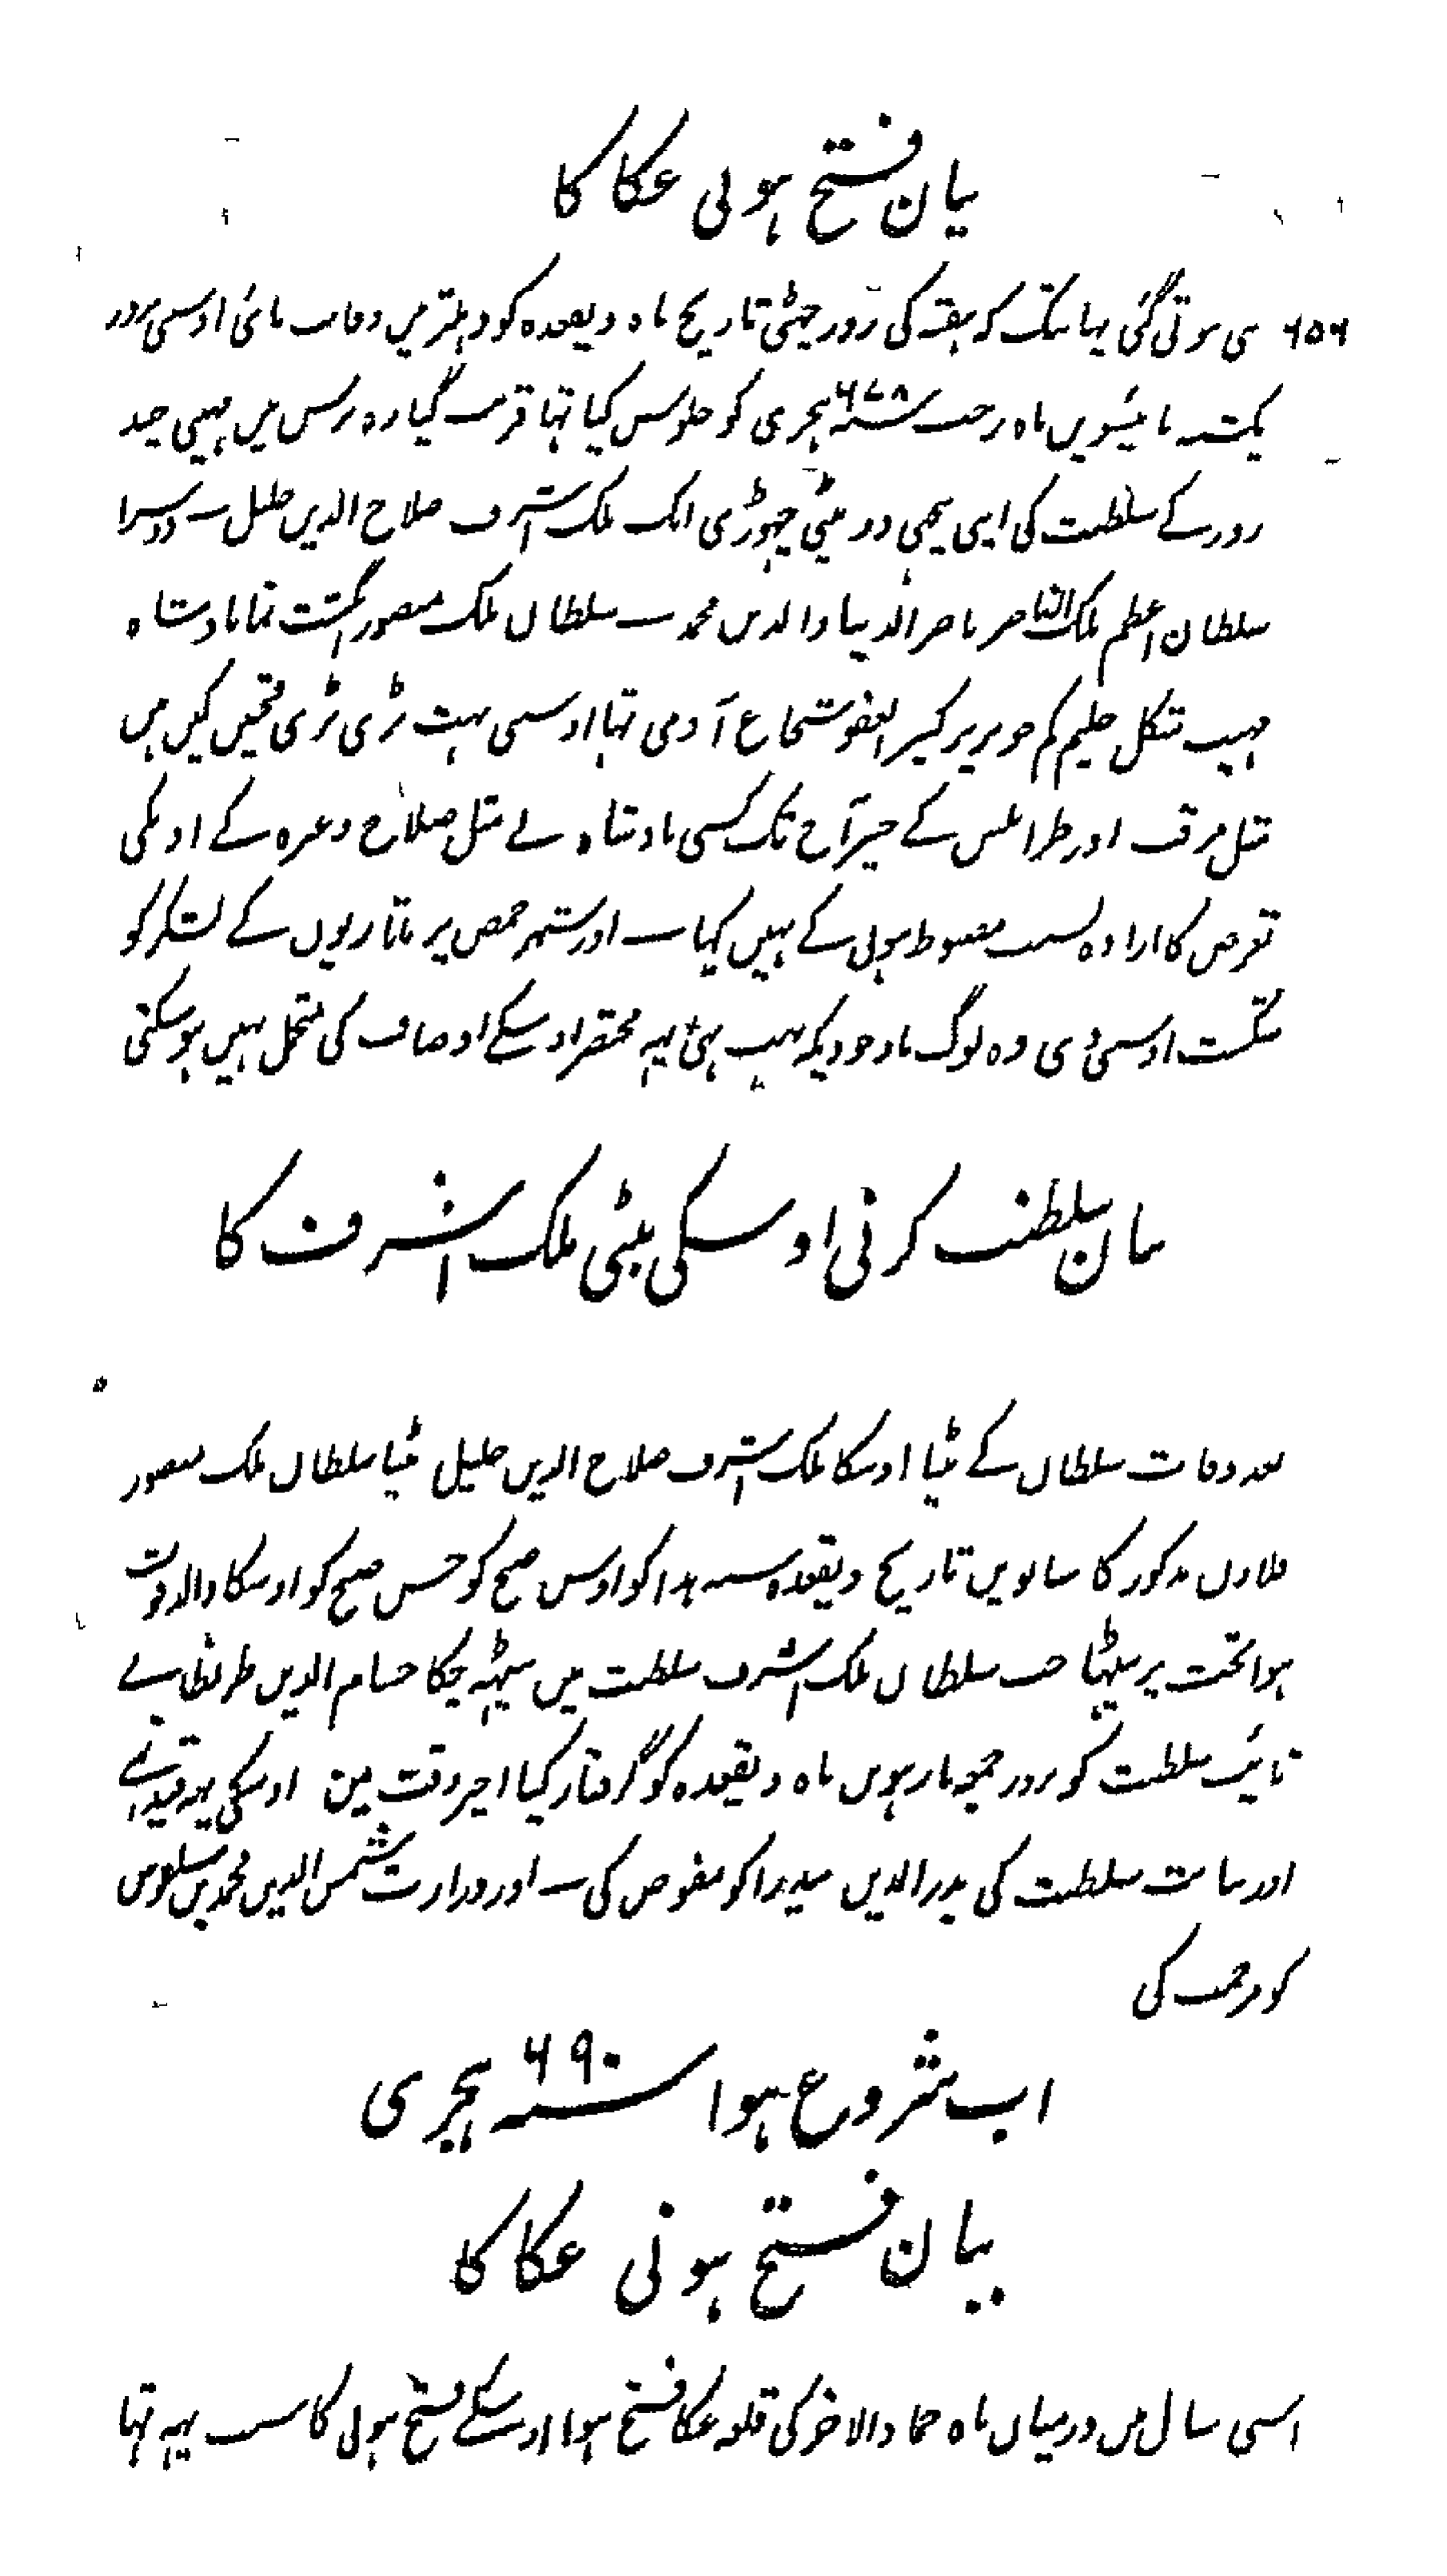 بیان فتح ہونی عکا کا
۶۵۶ سی ہوتی گئی یہانتک کہ ہفتہ کی روز چھٹی تاریخ ماہ ذیقعدہ کو دہلیز میں وفات پائی اوسی بروز
یکشنبہ بائیسویں ماہ رجب سنہ ۶۷۸ ہجری کو جلوس کیا تہا قریب گیارہ برس میں مہینی چند
روز کے سلطنت کی اپنی پیچھی دو بیٹی چہوڑی ایک ملک اشرف صلاح الدین خلیل ـ دوسرا
سلطان اعظم ملک الناصر ناصر الدنیا والدین محمد ـ سلطان ملک منصور انگشت نما بادشاہ
مہیب شکل حلیم کم خونریز کثیر العفو شجاع آدمی تہا اوسنی بہت بڑی بڑی فتحیں کیں ہیں
مثل مرقب اور طرابلس کے جنپر آج تک کسی بادشاہ نے مثل صلاح وغیرہ کے اونکی
تعرض کا ارادہ بسبب مضبوط ہونی کے نہیں کیا ـ اور شہر حمص پر تاتاریوں کے لشکر کو
شکست اوسنی دی وہ لوگ باوجودیکہ بہت تہی یہ مختصر اوسکے اوصاف کی متحمل نہیں ہوسکتی
بیان سلطنت کرنی اوسکی بیٹی ملک اشرف کا
بعد وفات سلطان کے بیٹا اوسکا ملک اشرف صلاح الدین خلیل بیٹا سلطان ملک منصور
قلاون مذکور کا ساتویں تاریخ ذیقعدہ سنہ ہذا کو اوس صبح کو جس صبح کو اوسکا والد فوت
ہوا تخت پر بیٹہا جب سلطان ملک اشرف سلطنت میں بیٹہہ چکا حسام الدین طرنطا نے
نائب سلطنت کو بروز جمعہ بارہویں ماہ ذیقعدہ کو گرفتار کیا اخیر وقت مین اوسکی یہ قید تہی
اور نیابت سلطنت کی بدر الدین بیدرا کو مفوض کی ـ اور وزارت شمس الدین محمد بن سلعوس
کو مرحمت کی
اب شروع ہوا سنہ ۶۹۰ ہجری
بیان فتح ہونی عکا کا
اسی سال میں درمیان ماہ جمادالاخر کی قلعہ عکا فتح ہوا اوسکے فتح ہونی کا سبب یہہ تہا